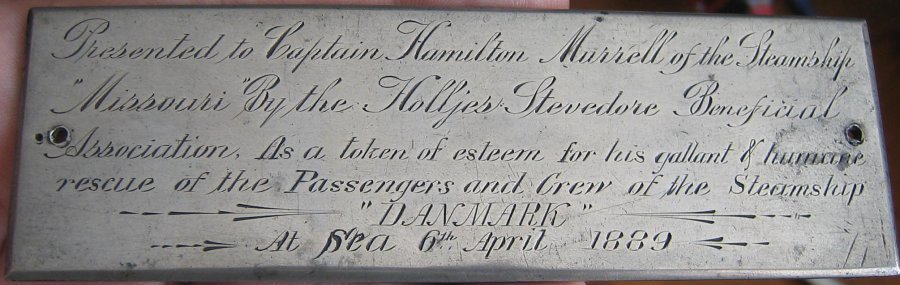 Presented to Captain Hamilton Murrell of the Steamship
"Missouri" By the Holljes Stevedore Beneficial
Association, As a token of esteem for his gallant & humane
rescue of the Passengers and Crew of the Steamship
"DANMARK"
At Sea 6th April 1889